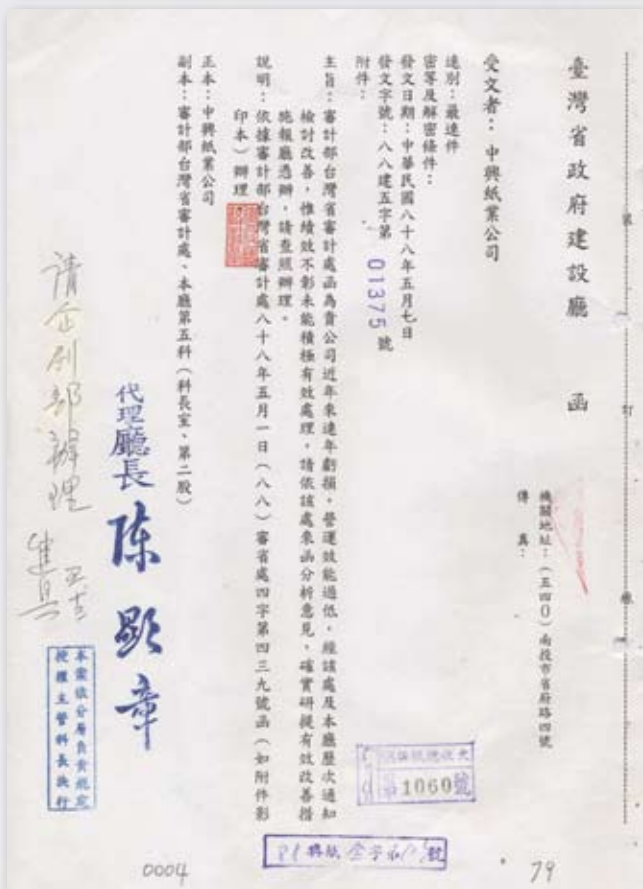 臺灣省政府建設廳 函
機關地址：(五四〇)南投市省府路四號
傳真：
受文者：中興紙業公司
速別：最速件
密等及解密條件：
發文日期：中華民國八十八年五月七日
發文字號：八八建五字第 01375 號
附件：
主旨：審計部台灣省審計處函為貴公司近年來連年虧損，營運效能過低，經該處及本廳歷次通知
檢討改善，惟績效不彰未能積極有效處理，請依該處來函分析意見，確實研提有效改善措
施報廳憑辦，請查照辦理。
說明：依據審計部台灣省審計處八十八年五月一日(八八)審省處四字第四三九號函(如附件影
印本)辦理
正本：中興紙業公司
副本：審計部台灣省審計處、本廳第五科(科長室、第二股)
代理廳長 陳顯章
請企劃部辦理
本案依分層負責規定
授權主管科長決行
第1060號
裝
訂
線
0004
79